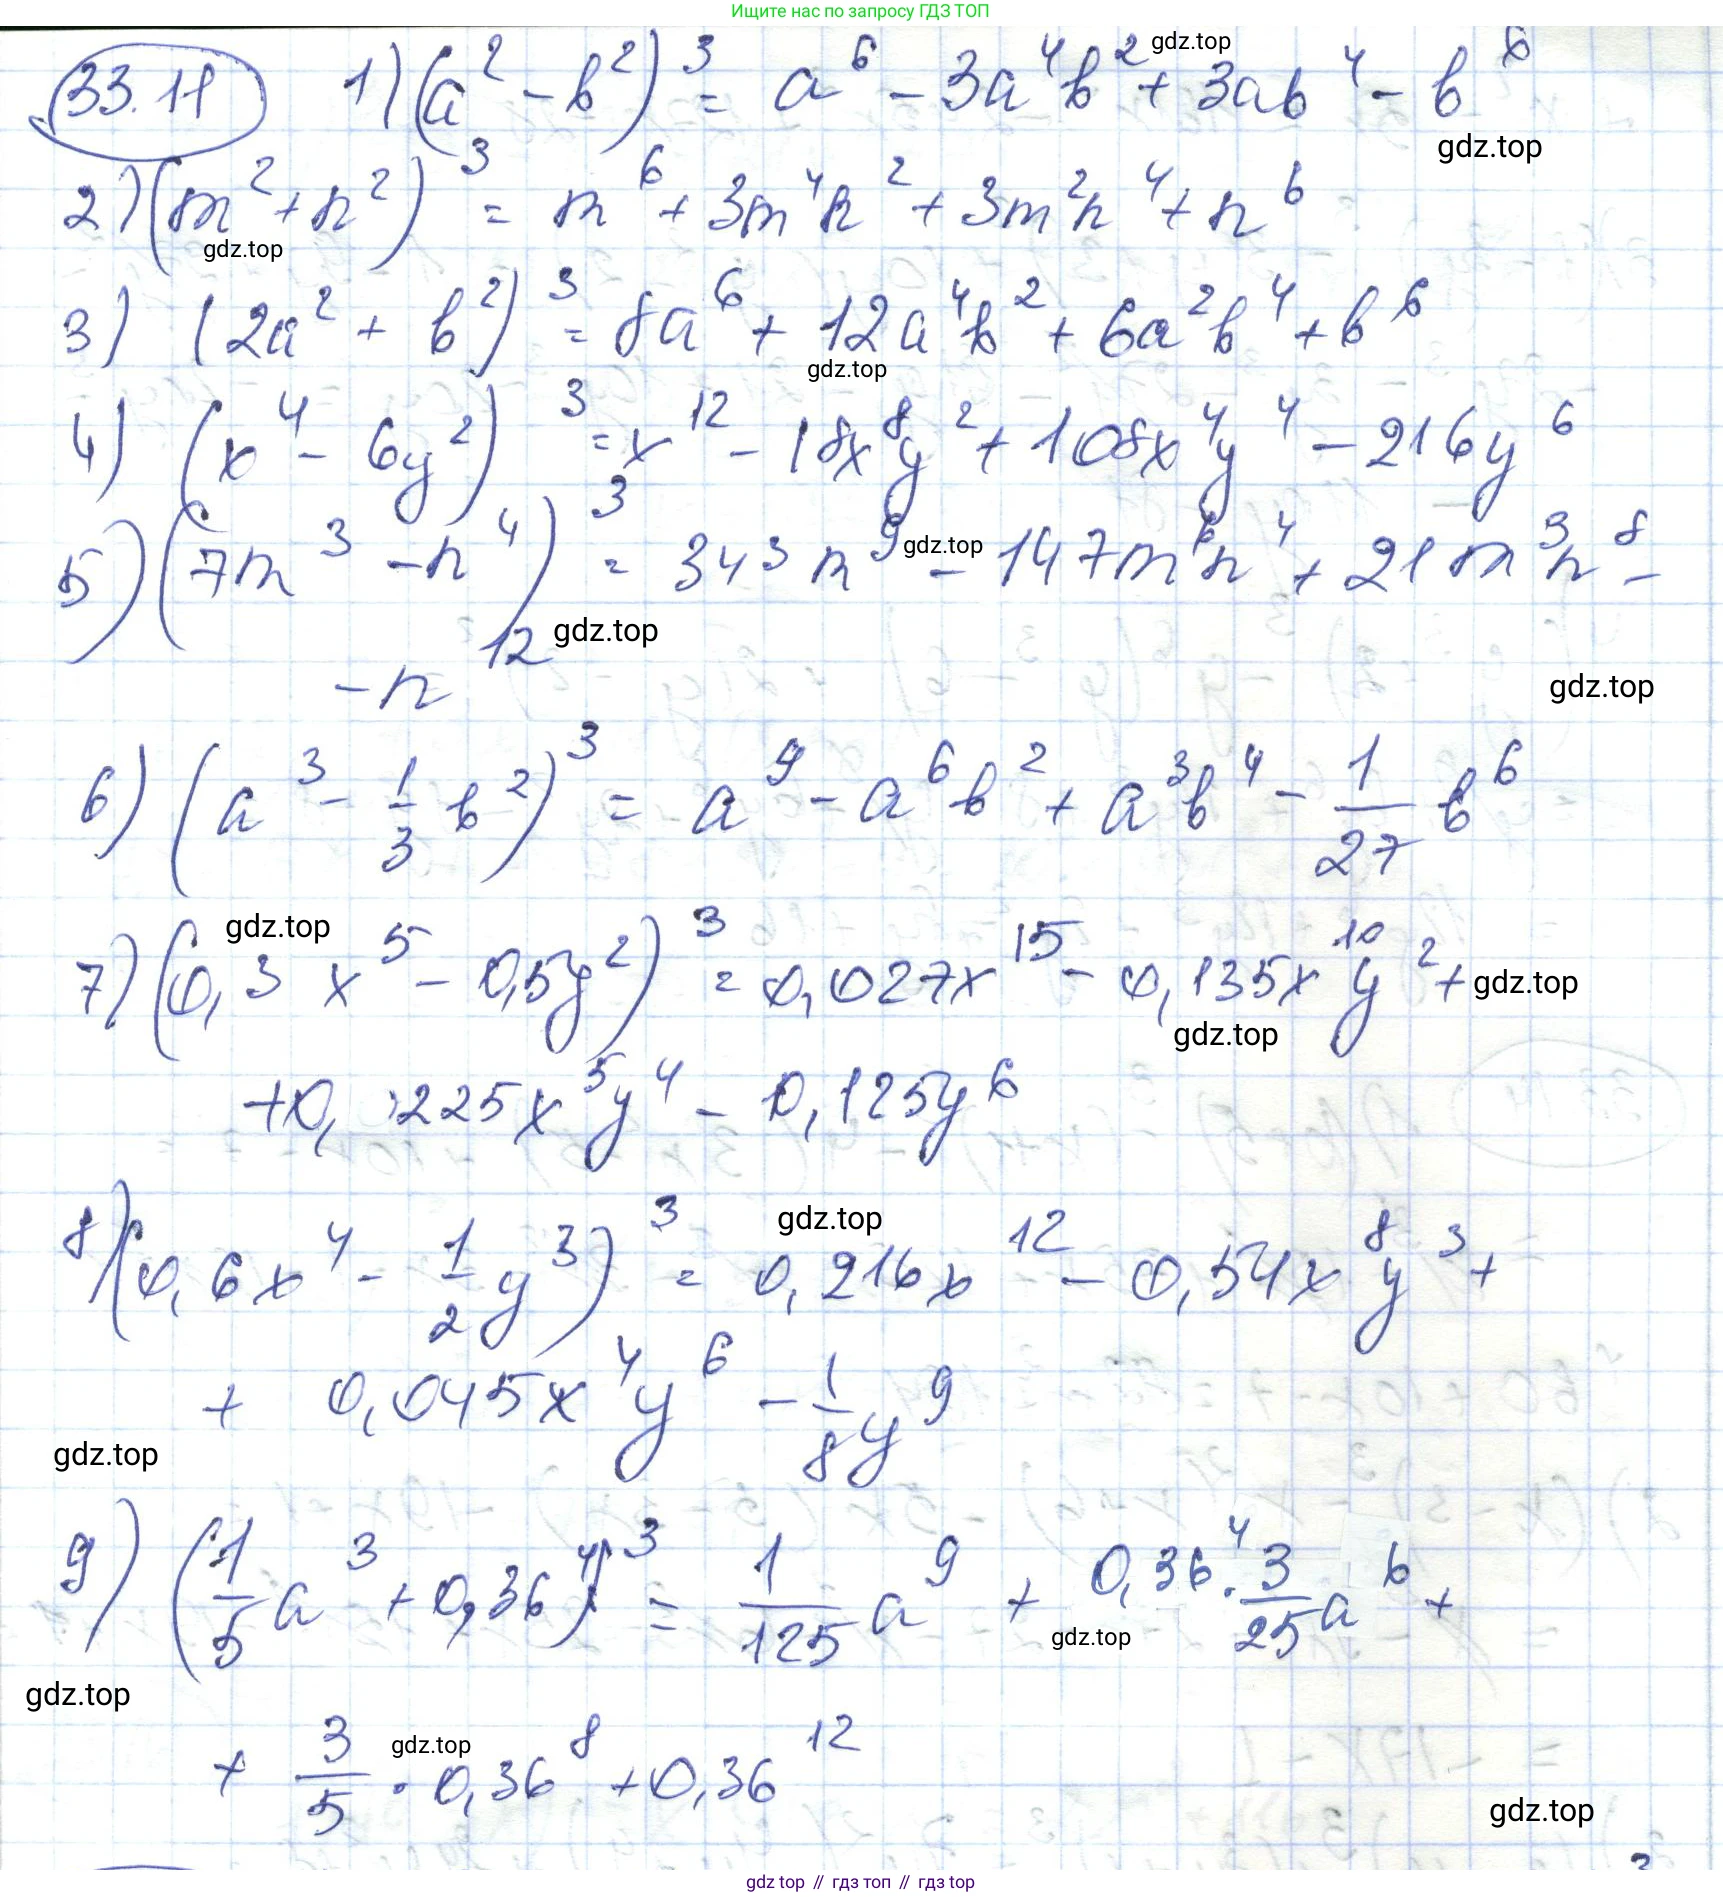 Ищите нас по запросу ГДЗ ТОП
33.11 1) (a² - b²)³ = a⁶ - 3a⁴b² + 3ab⁴ - b⁶
gdz.top
gdz.top
2) (m² + n²)³ = m⁶ + 3m⁴n² + 3m²n⁴ + n⁶
gdz.top
3) (2a² + b²)³ = 8a⁶ + 12a⁴b² + 6a²b⁴ + b⁶
gdz.top
4) (x⁴ - 6y²)³ = x¹² - 18x⁸y² + 108x⁴y⁴ - 216y⁶
5) (7m³ - n⁴)³ = 343m⁹ - 147m⁶n⁴ + 21m³n⁸ -
gdz.top
gdz.top
- n¹²
gdz.top
6) (a³ - 1/3 b²)³ = a⁹ - a⁶b² + a³b⁴ - 1/27 b⁶
gdz.top
7) (0,3x⁵ - 0,5y²)³ = 0,027x¹⁵ - 0,135x¹⁰y² +
gdz.top
gdz.top
+ 0,225x⁵y⁴ - 0,125y⁶
gdz.top
8) (0,6x⁴ - 1/2 y³)³ = 0,216x¹² - 0,54x⁸y³ +
+ 0,045x⁴y⁶ - 1/8 y⁹
gdz.top
9) (1/5 a³ + 0,3b⁴)³ = 1/125 a⁹ + 0,3b⁴ · 3/25 a⁶ +
gdz.top
gdz.top
+ 3/5 · 0,3b⁸ + 0,3b¹²
gdz.top
gdz.top
3
gdz top // гдз топ // гдз top